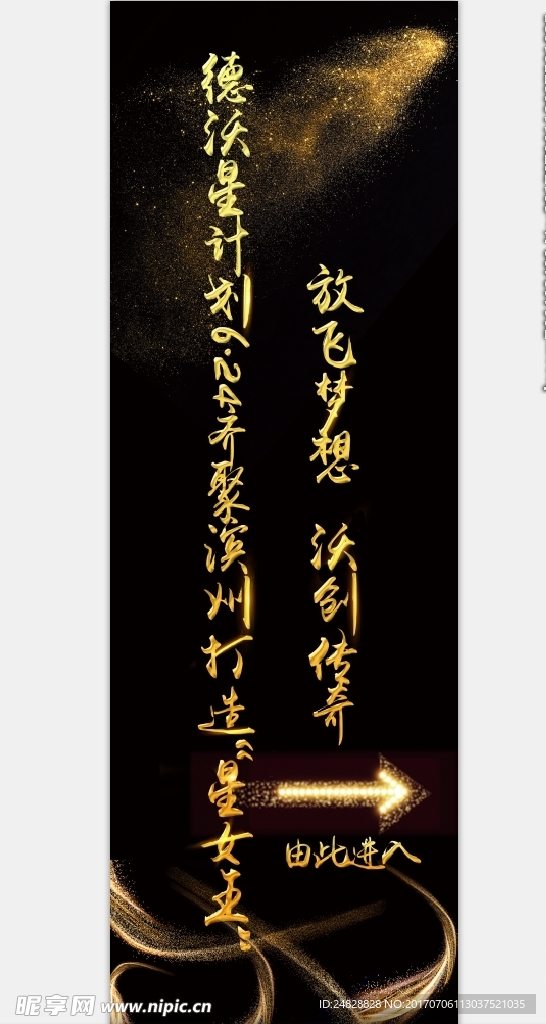 德沃星计划6.24齐聚滨州打造“星女王”
放飞梦想 沃创传奇
由此进入
昵享网 www.nipic.cn
ID:24828828 NO:20170706113037521035